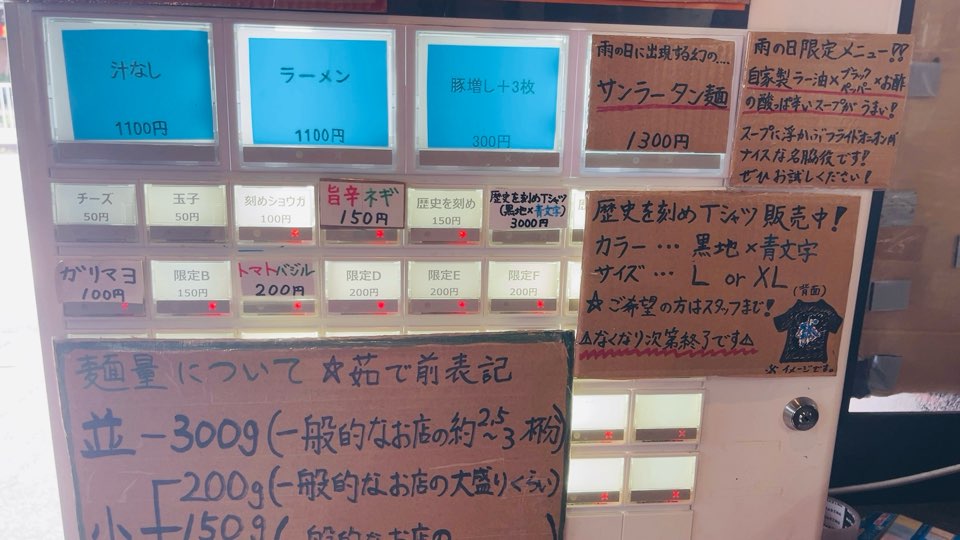 汁なし
1100円
ラーメン
1100円
豚増し+3枚
300円
雨の日に出現する幻の....
サンラータン麺
1300円
雨の日限定メニュー!!
自家製ラー油×ブラックペッパー×お酢
の酸っぱ辛いスープがうまい!
スープに浮かぶフライドオニオンが
ナイスな名脇役です!
ぜひお試しください!
チーズ
50円
玉子
50円
刻めショウガ
100円
旨辛ネギ
150円
歴史を刻め
150円
歴史を刻めTシャツ
(黒地×青文字)
3000円
ガリマヨ
100円
限定B
150円
トマトバジル
200円
限定D
200円
限定E
200円
限定F
200円
歴史を刻めTシャツ 販売中!
カラー … 黒地×青文字
サイズ … L or XL
(背面)
☆ご希望の方はスタッフまで!
△なくなり次第終了です△
※イメージです。
麺量について ☆茹で前表記
並-300g(一般的なお店の約2.5~3杯分)
小 200g(一般的なお店の大盛りくらい)
150g(一般的なお店の